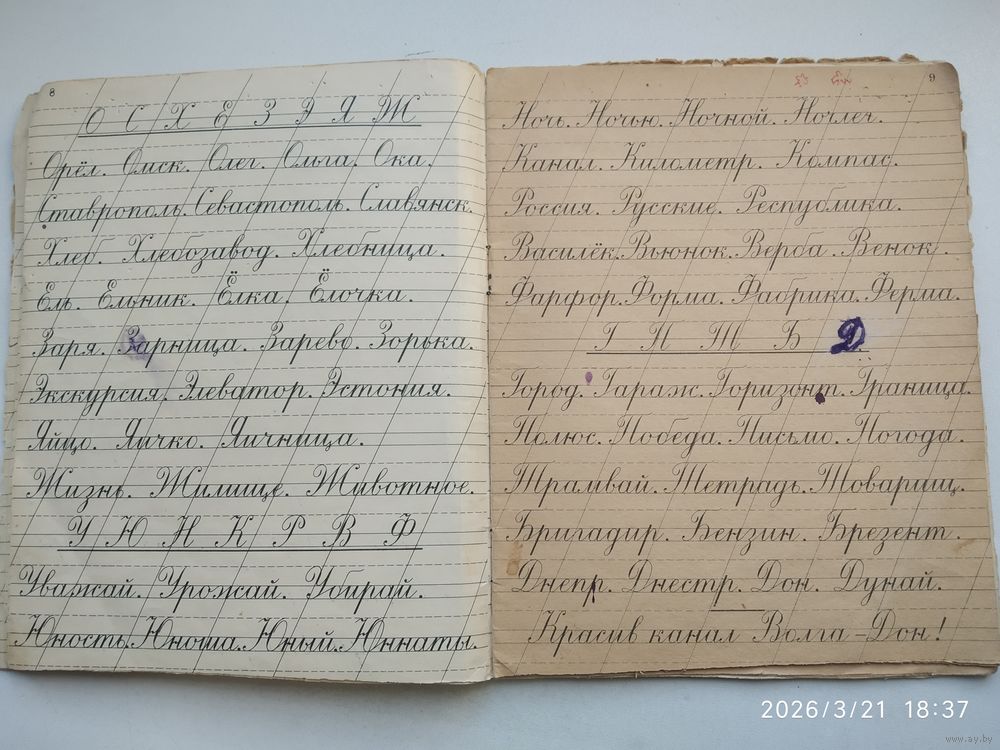 8
О С Х Е З Э Я Ж
Орёл. Омск. Олег. Ольга. Ока.
Ставрополь. Севастополь. Славянск.
Хлеб. Хлебозавод. Хлебница.
Ель. Ельник. Ёлка. Ёлочка.
Заря. Зарница. Зарево. Зорька.
Экскурсия. Элеватор. Эстония.
Яйцо. Яичко. Яичница.
Жизнь. Жилище. Животное.
У Ю Н К Р В Ф
Уважай. Урожай. Убирай.
Юность. Юноша. Юный. Юннаты.
9
Ночь. Ночью. Ночной. Ночлег.
Канал. Километр. Компас.
Россия. Русские. Республика.
Василёк. Вьюнок. Верба. Венок.
Фарфор. Форма. Фабрика. Ферма.
Г П Т Б Д
Город. Гараж. Горизонт. Граница.
Полюс. Победа. Письмо. Погода.
Трамвай. Тетрадь. Товарищ.
Бригадир. Бензин. Брезент.
Днепр. Днестр. Дон. Дунай.
Красив канал Волга – Дон!
2026/3/21 18:37
www.ay.by